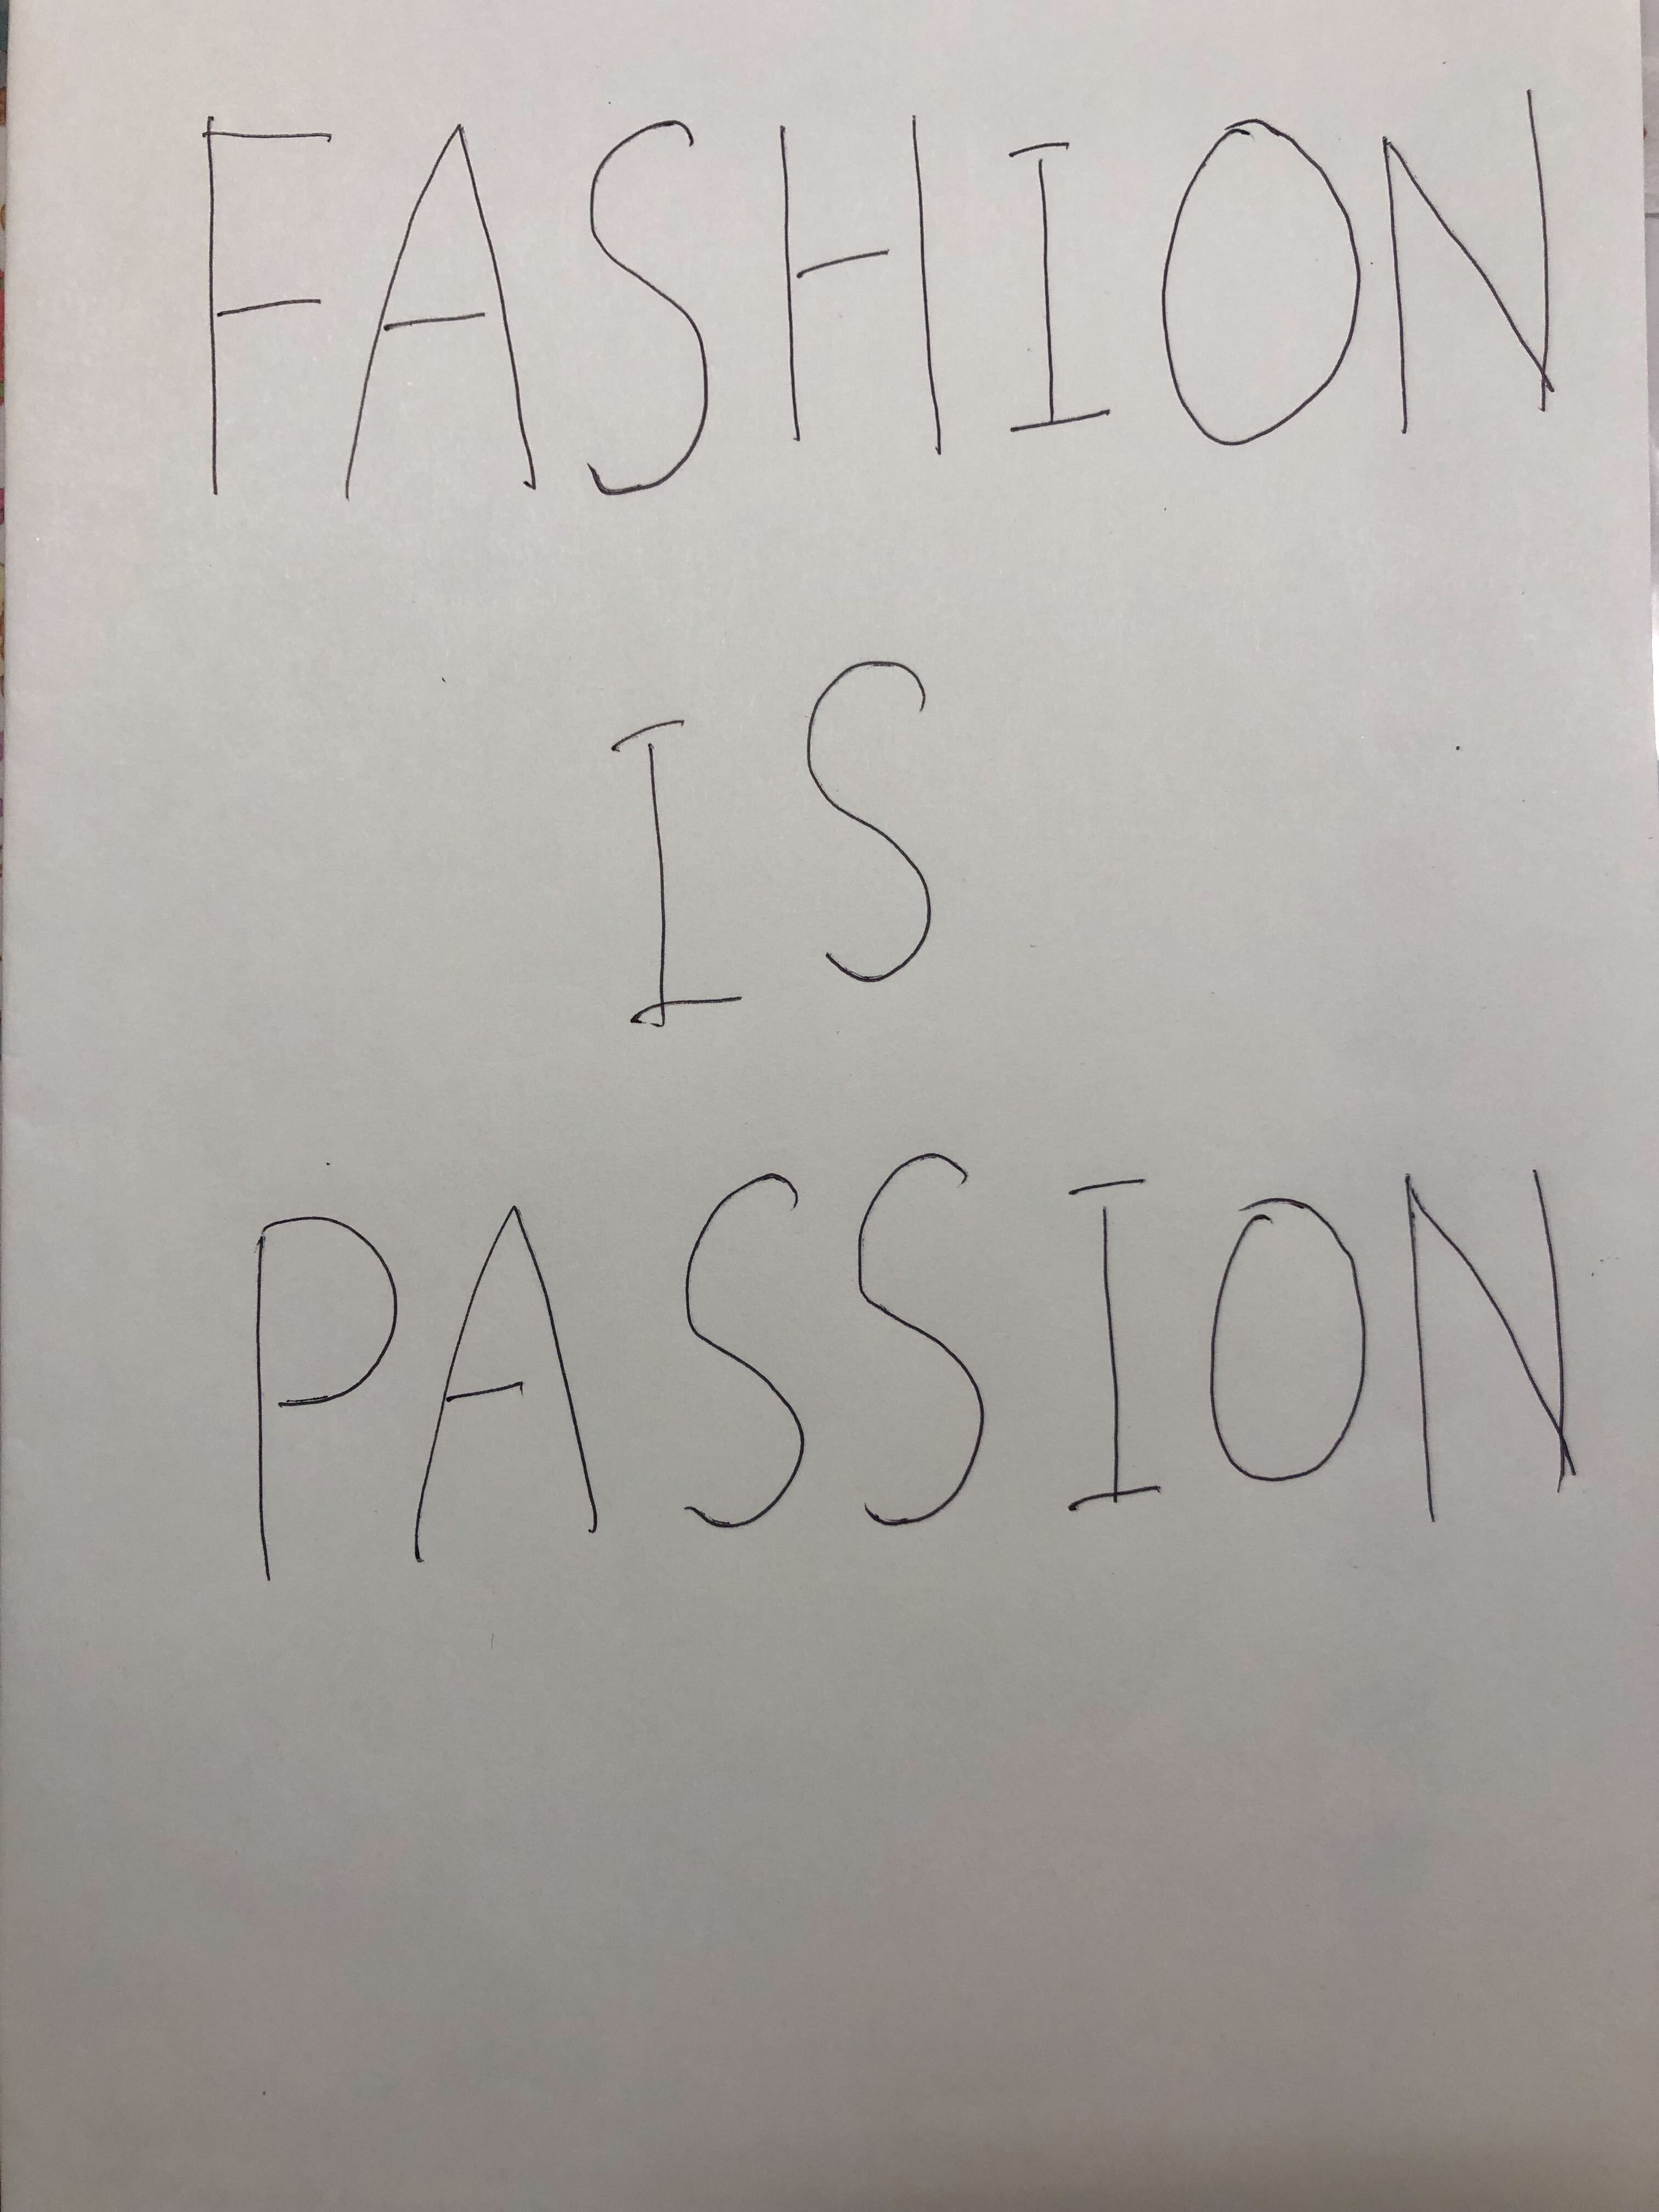 FASHION
IS
PASSION